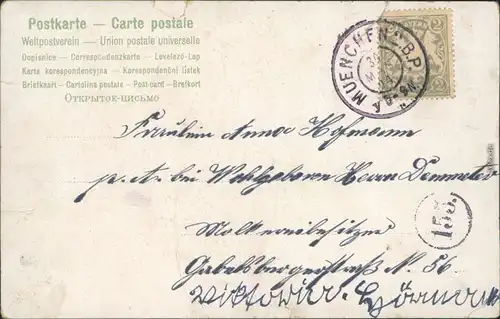 Postkarte — Carte postale
Weltpostverein — Union postale universelle
Dopisnice — Correspondenzkarte — Levelező-Lap
Karta korespondencyjna — Korespondenční lístek
Briefkaart — Cartolina postale — Post card — Brefkort
ОТКРЫТОЕ ПИСЬМО
MUENCHEN B.P.
Fräulein Anna Hofmann
p. Adr. bei Wohlgeboren Herrn
Molkereibesitzer
Gabelsbergerstraße N. 56
153